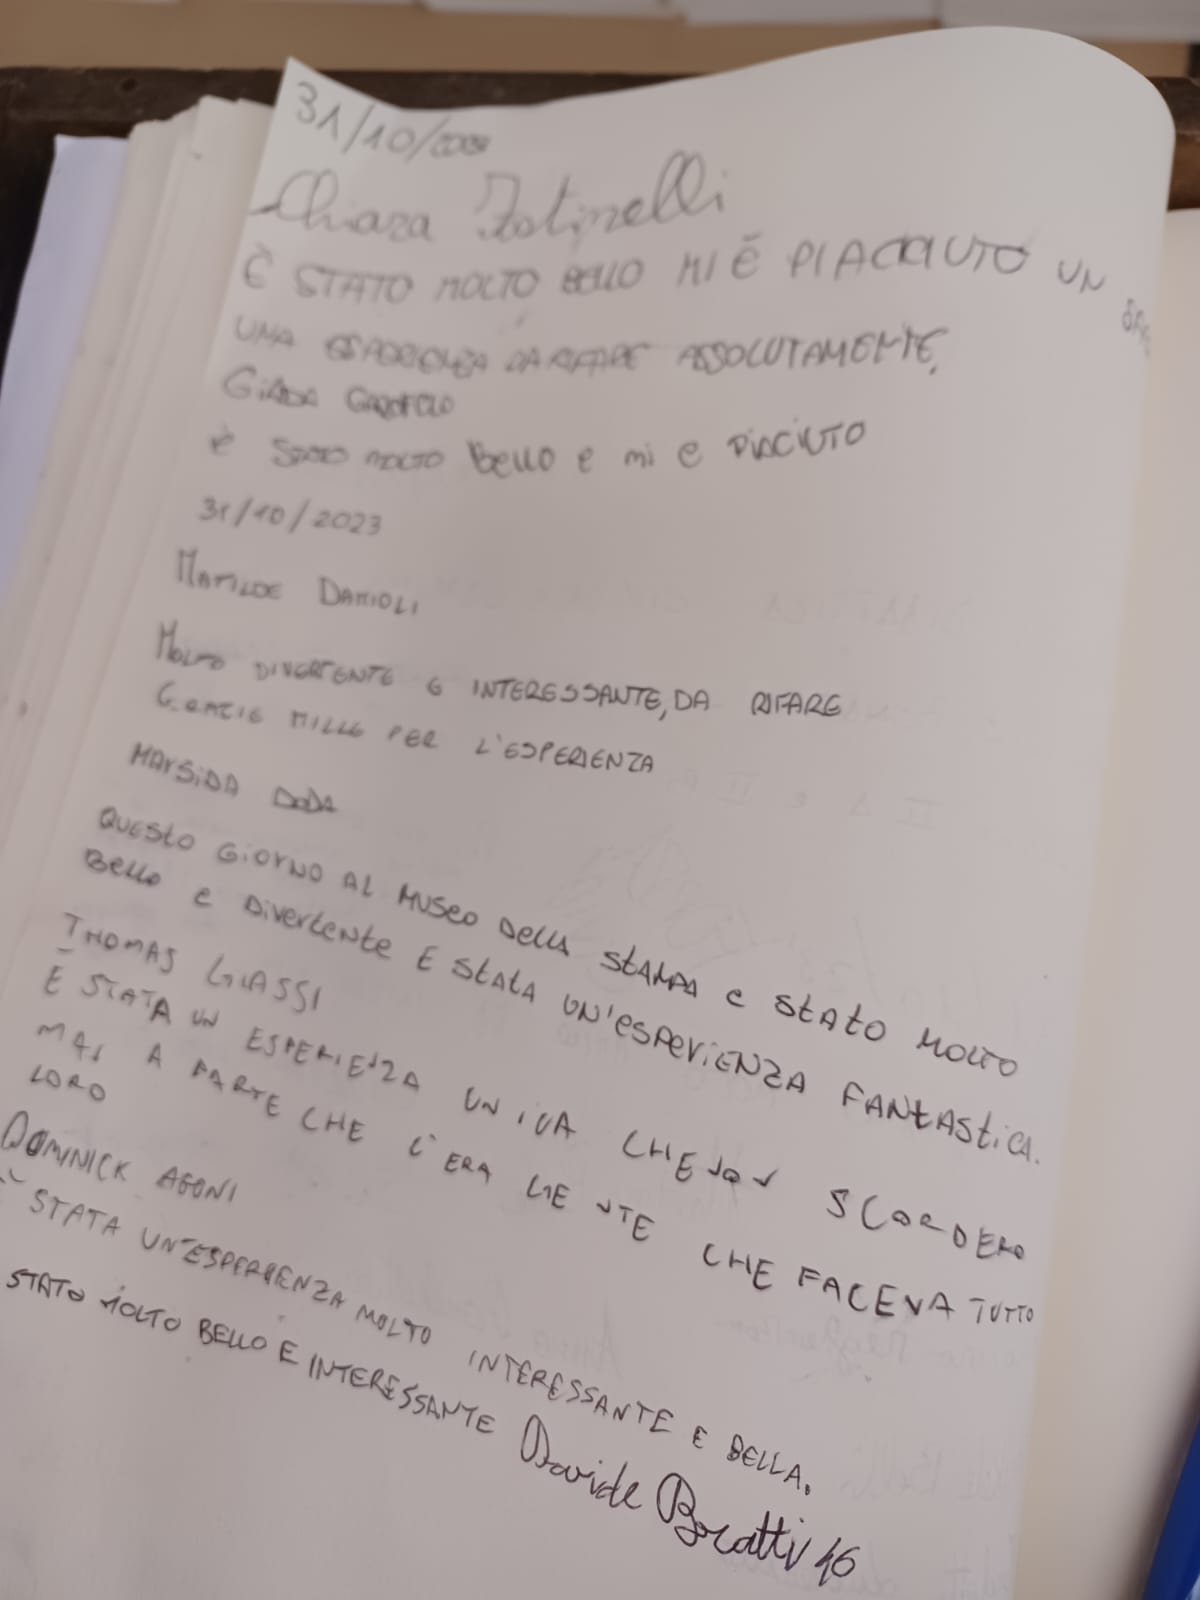 31/10/2023
Chiara
È STATO MOLTO BELLO MI È PIACIUTO UN
UNA ESPERIENZA DA RIFARE ASSOLUTAMENTE,
GIADA GAROFALO
È STATO MOLTO BELLO E MI E PIACIUTO
31/10/2023
MATILDE DAMIOLI
MOLTO DIVERTENTE E INTERESSANTE, DA RIFARE
GRAZIE MILLE PER L'ESPERIENZA
MARSIDA DODA
QUESTO GIORNO AL MUSEO DELLA STAMPA E STATO MOLTO
BELLO E DIVERTENTE E STATA UN'ESPERIENZA FANTASTICA.
THOMAS GLASSI
È STATA UN ESPERIENZA UNICA CHE NON SCORDERO
MAI A PARTE CHE C'ERA GENTE CHE FACEVA TUTTO
LORO
DOMINICK AGONI
È STATA UN'ESPERIENZA MOLTO INTERESSANTE E BELLA.
STATO MOLTO BELLO E INTERESSANTE Davide Boratti 46